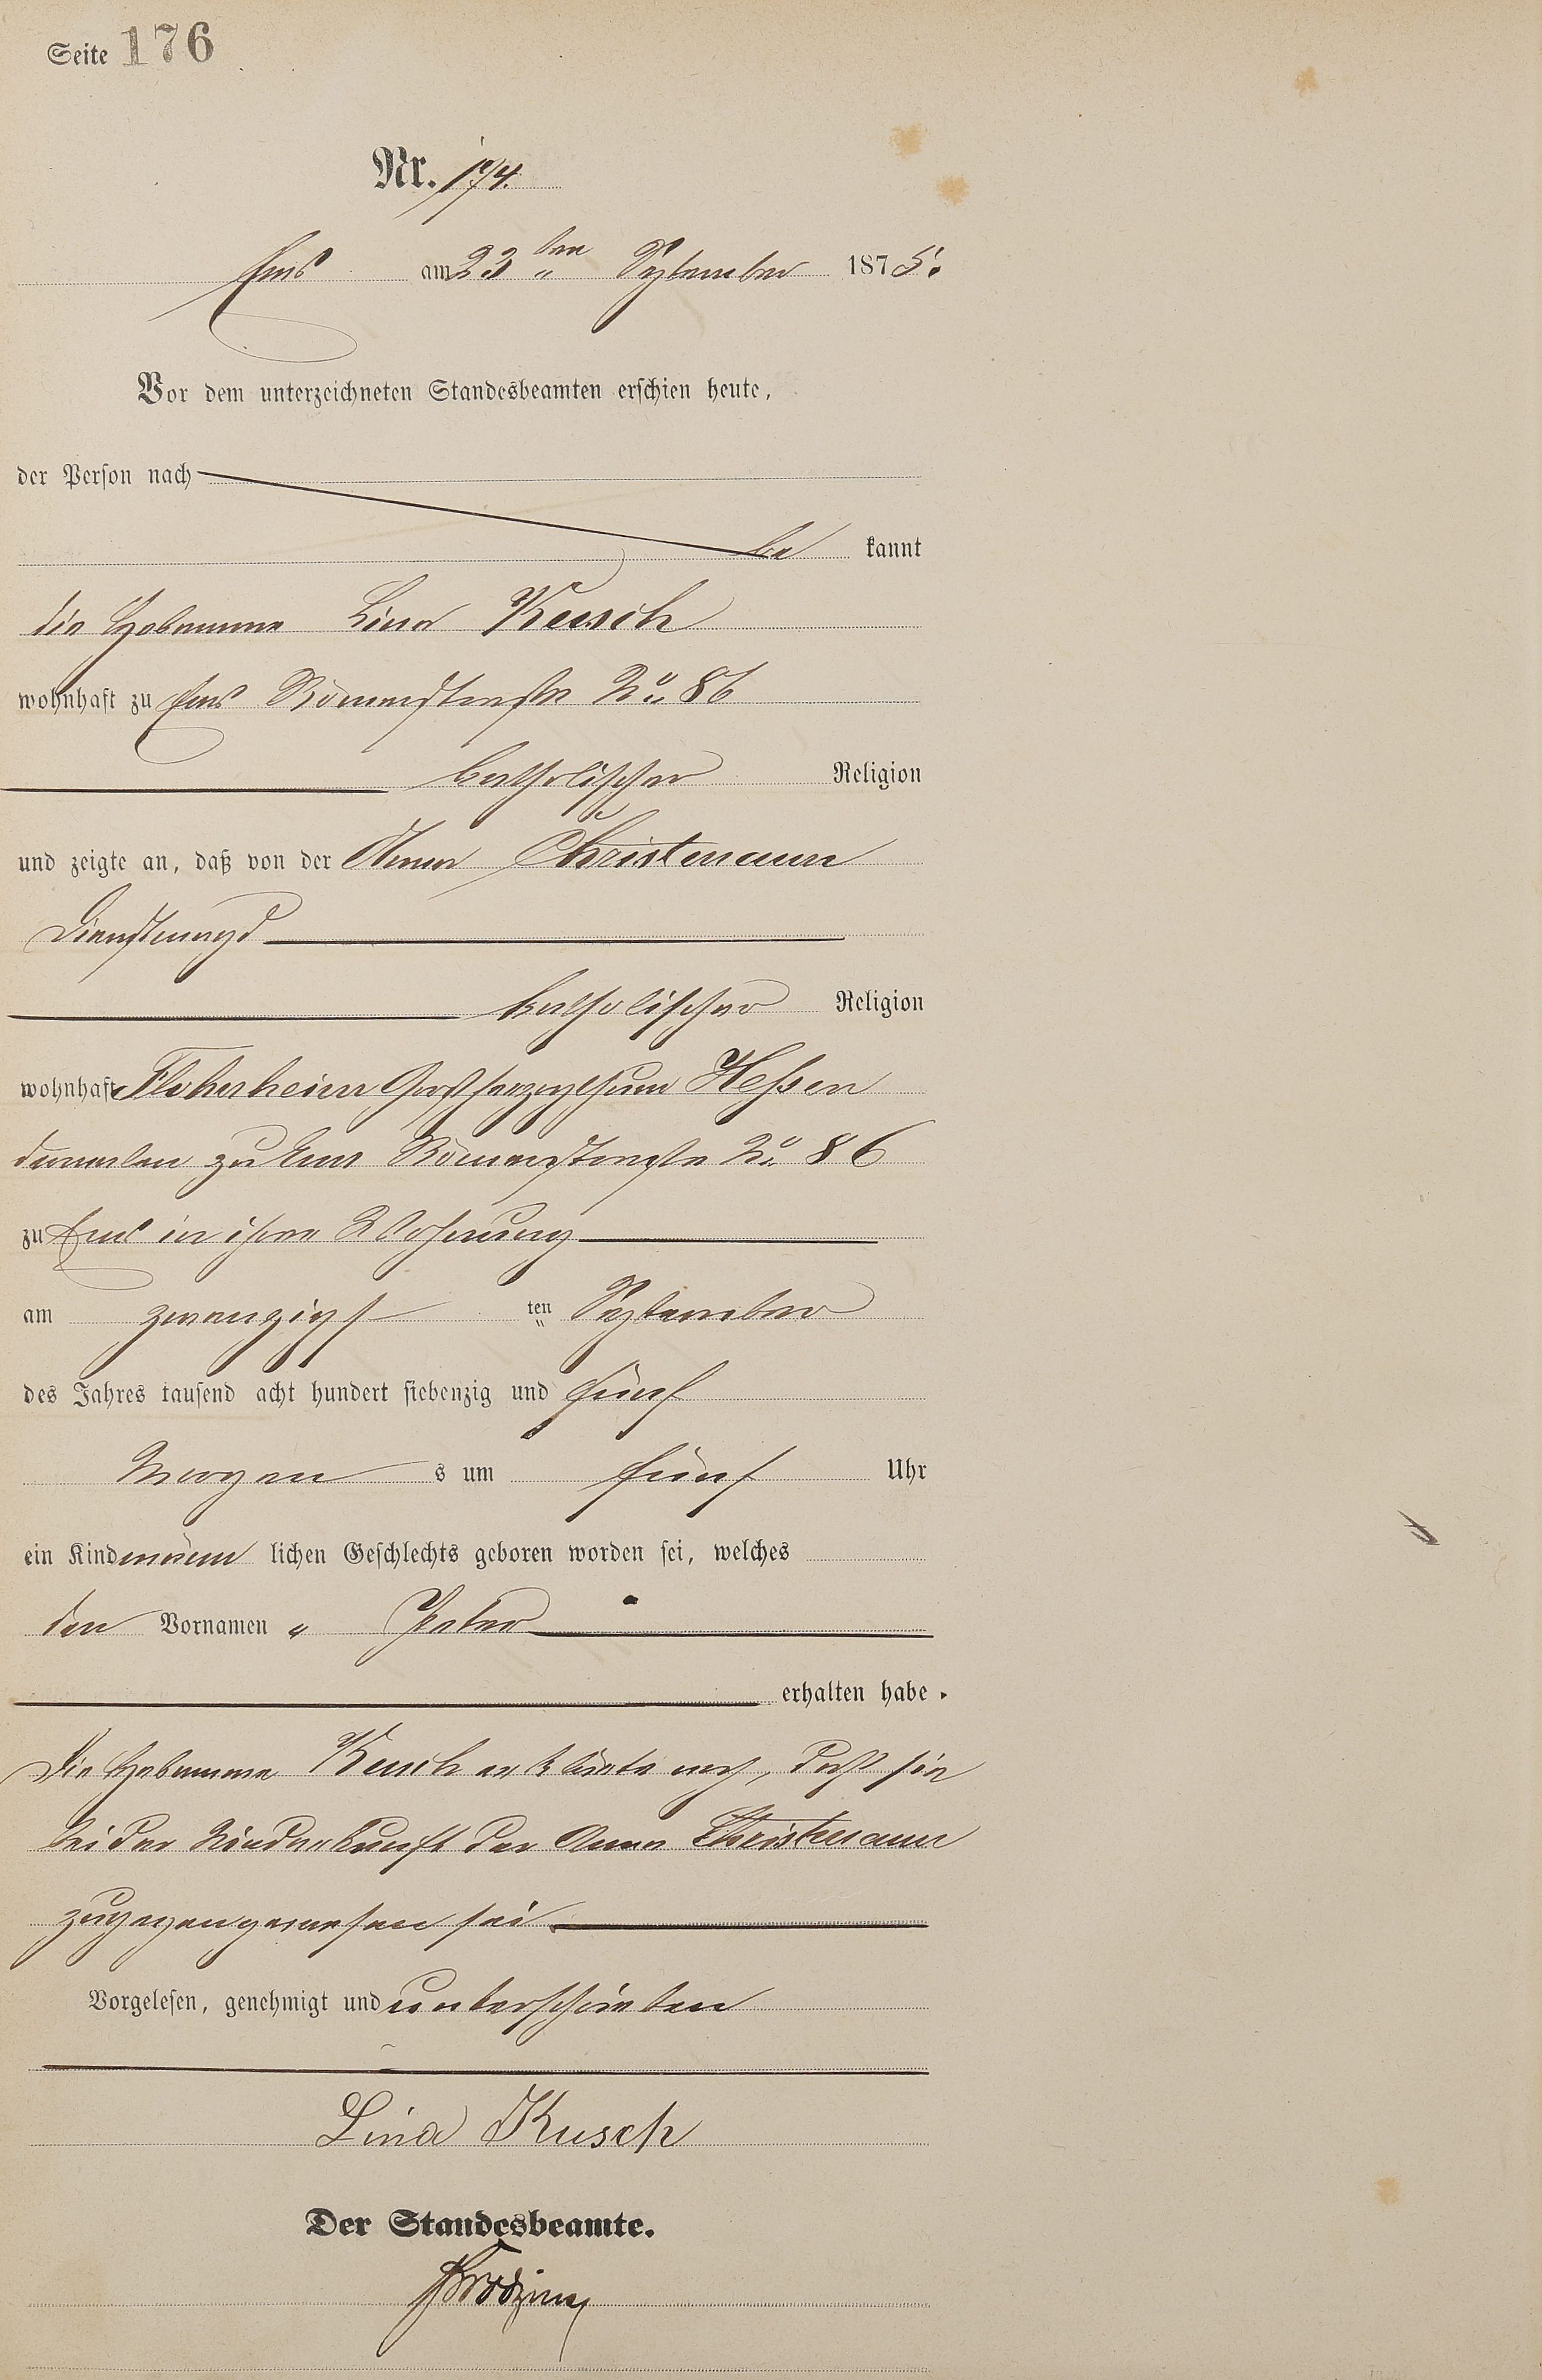 Seite 176
Nr. 174.
Ems am 23 ten September 1875.
Vor dem unterzeichneten Standesbeamten erschien heute,
der Person nach
be kannt
die Hebamme Lina Kusch
wohnhaft zu Ems Römerstraße No. 86
katholischer Religion
und zeigte an, daß von der Anna Christmann
Dienstmagd
katholischer Religion
wohnhaft Flonheim Großherzogthum Hessen
dermalen zu Ems Römerstraße No. 86
zu Ems in ihrer Wohnung
am zwanzigs ten September
des Jahres tausend acht hundert siebenzig und fünf
Morgen s um fünf Uhr
ein Kind männ lichen Geschlechts geboren worden sei, welches
den Vornamen Peter
erhalten habe.
Die Hebamme Kusch erklärte noch, daß sie
bei der Niederkunft der Anna Christmann
zugegen gewesen sei
Vorgelesen, genehmigt und unterschrieben
Lina Kusch
Der Standesbeamte.